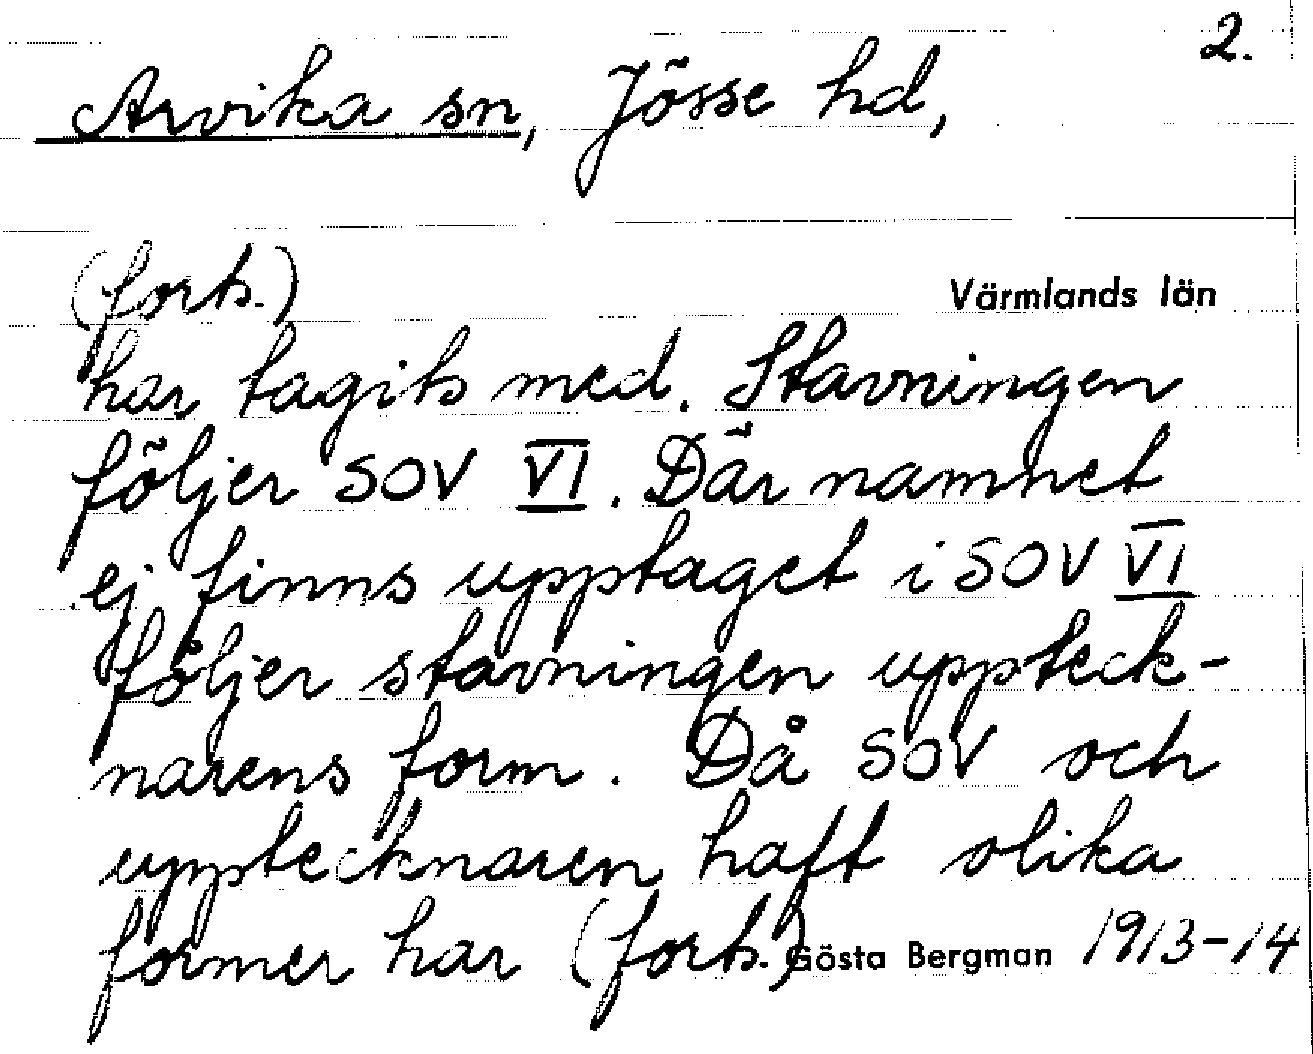 2.
Arvika sn, Jösse hd,
(forts.)
Värmlands län
har tagits med. Stavningen
följer SOV VI. Där namnet
ej finns upptaget i SOV VI
följer stavningen uppteck-
narens form. Då SOV och
upptecknaren haft olika
former har (forts.) Gösta Bergman 1913-14